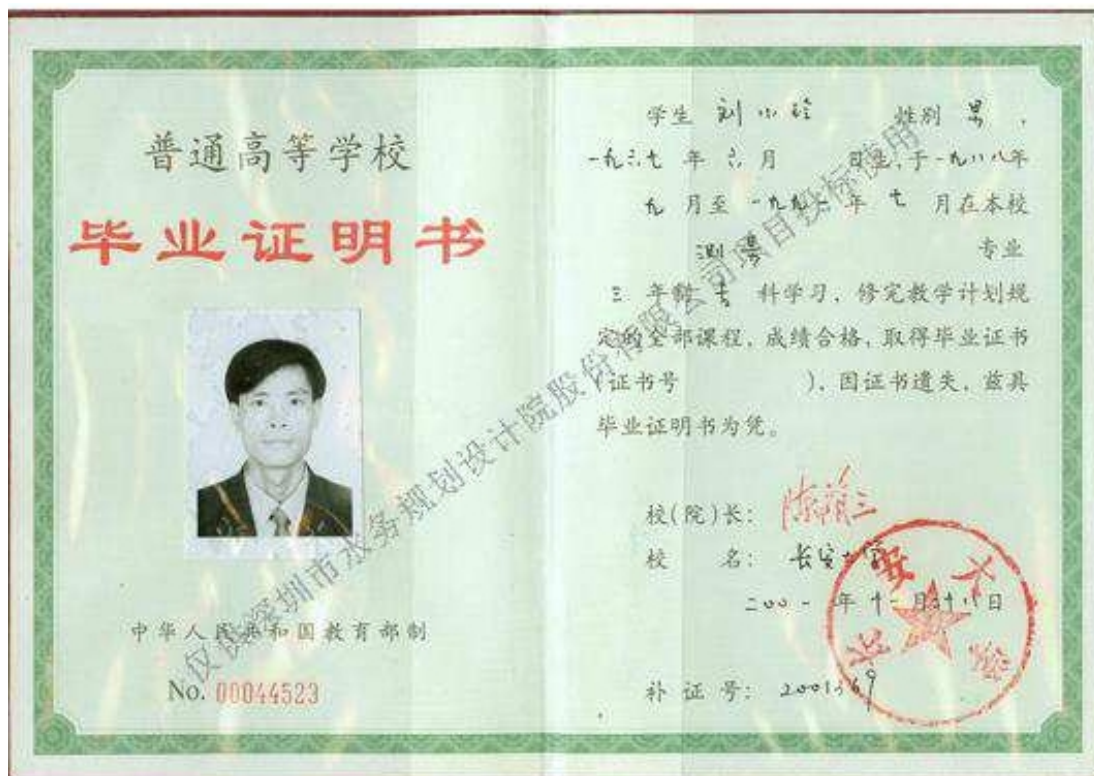 普通高等学校
毕业证明书
中华人民共和国教育部制
No. 00044523
学生 刘小 性别 男，
一九六七 年 六 月 日生，于一九八八年
九 月至 一九九一 年 七 月在本校
测量 专业
三 年制 专 科学习，修完教学计划规
定的全部课程，成绩合格，取得毕业证书
（证书号 ），因证书遗失，兹具
毕业证明书为凭。
校（院）长：
校 名：长安大学
二00一 年 十一 月 日
补 证 号：2001369
长安大学
仅供深圳市水务规划设计院股份有限公司项目投标使用